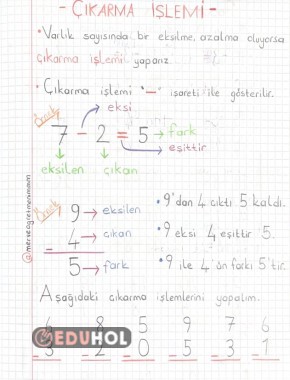 - ÇIKARMA İŞLEMİ -
• Varlık sayısında bir eksilme, azalma oluyorsa
çıkarma işlemi yaparız.
• Çıkarma işlemi "—" işareti ile gösterilir.
Örnek
eksi
7 - 2 = 5 → fark
eşittir
eksilen çıkan
Örnek
9 → eksilen
- 4 → çıkan
5 → fark
• 9'dan 4 çıktı 5 kaldı.
• 9 eksi 4 eşittir 5.
• 9 ile 4'ün farkı 5'tir.
Aşağıdaki çıkarma işlemlerini yapalım.
8 5 9 7 6
- 3 - 2 - 0 - 5 - 3 - 1
EDUHOL